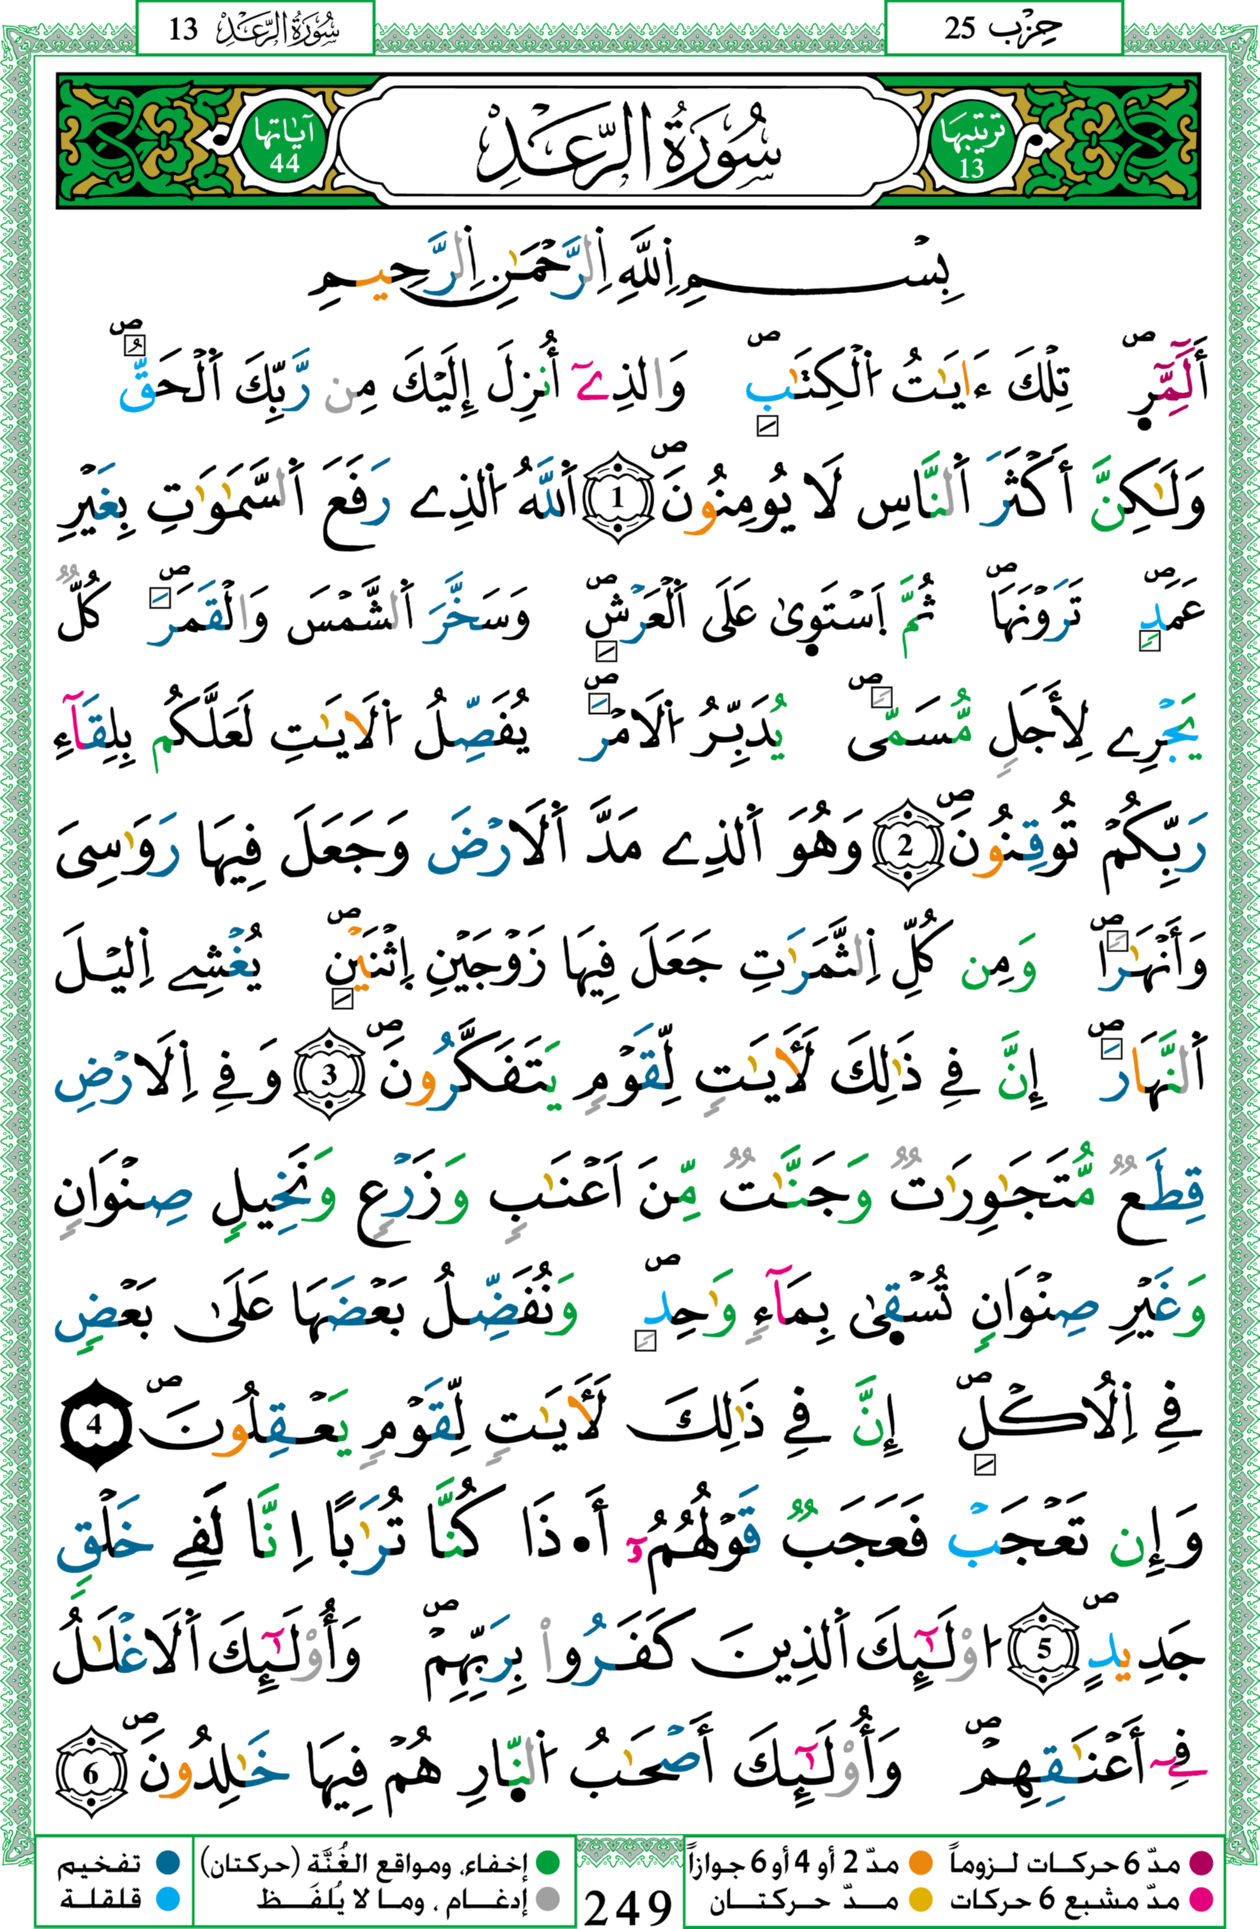 حِزْب 25
سُورَةُ الرَّعْدِ 13
تَرْتِيبُهَا 13
سُورَةُ الرَّعْدِ
آيَاتُهَا 44
بِسْمِ اِ۬للَّهِ اِ۬لرَّحْمَٰنِ اِ۬لرَّحِيمِ
أَلَٓمِّٓرۖ تِلْكَ ءَايَٰتُ اُ۬لْكِتَٰبِۖ وَالذِےٓ أُنزِلَ إِلَيْكَ مِن رَّبِّكَ اَ۬لْحَقُّۖ
وَلَٰكِنَّ أَكْثَرَ اَ۬لنَّاسِ لَا يُومِنُونَۖ 1 اَ۬للَّهُ اُ۬لذِے رَفَعَ اَ۬لسَّمَٰوَٰتِ بِغَيْرِ
عَمَدٖۖ تَرَوْنَهَاۖ ثُمَّ اَ۪سْتَوَىٰ عَلَى اَ۬لْعَرْشِۖ وَسَخَّرَ اَ۬لشَّمْسَ وَالْقَمَرَۖ كُلّٞ
يَجْرِے لِأَجَلٖ مُّسَمّيٗۖ يُدَبِّرُ اُ۬لَامْرَۖ يُفَصِّلُ اُ۬لَايَٰتِ لَعَلَّكُم بِلِقَآءِ
رَبِّكُمْ تُوقِنُونَۖ 2 وَهُوَ اَ۬لذِے مَدَّ اَ۬لَارْضَ وَجَعَلَ فِيهَا رَوَٰسِيَ
وَأَنْهَٰراٗۖ وَمِن كُلِّ اِ۬لثَّمَرَٰتِ جَعَلَ فِيهَا زَوْجَيْنِ اِ۪ثْنَيْنِۖ يُغْشِے اِ۬ليْلَ
اَ۬لنَّهَارَۖ إِنَّ فِے ذَٰلِكَ لَأٓيَٰتٖ لِّقَوْمٖ يَتَفَكَّرُونَۖ 3 وَفِے اِ۬لَارْضِ
قِطَعٞ مُّتَجَٰوِرَٰتٞ وَجَنَّٰتٞ مِّنَ اَعْنَٰبٖ وَزَرْعٖ وَنَخِيلٖ صِنْوَانٖ
وَغَيْرِ صِنْوَانٖ تُسْقَىٰ بِمَآءٖ وَٰحِدٖۖ وَنُفَضِّلُ بَعْضَهَا عَلَىٰ بَعْضٖ
فِے اِ۬لُاكْلِۖ إِنَّ فِے ذَٰلِكَ لَأٓيَٰتٖ لِّقَوْمٖ يَعْقِلُونَۖ 4
وَإِن تَعْجَبْ فَعَجَبٞ قَوْلُهُمُۥٓ أَ•ذَا كُنَّا تُرَٰباً اِنَّا لَفِے خَلْقٖ
جَدِيدٍۖ 5 اُ۟وْلَٰٓئِكَ اَ۬لذِينَ كَفَرُواْ بِرَبِّهِمْۖ وَأُوْلَٰٓئِكَ اَ۬لَاغْلَٰلُ
فِےٓ أَعْنَٰقِهِمْۖ وَأُوْلَٰٓئِكَ أَصْحَٰبُ اُ۬لنّ۪ارِ هُمْ فِيهَا خَٰلِدُونَۖ 6
مدّ 6 حركات لـزوماً مدّ 2 أو 4 أو 6 جوازاً
مدّ مشبع 6 حركات مـدّ حـركتـان
249
إخفاء، ومواقع الغُنَّة (حركتان) تفخيم
إدغـام ، ومـا لا يُلفَـظ قلقلة